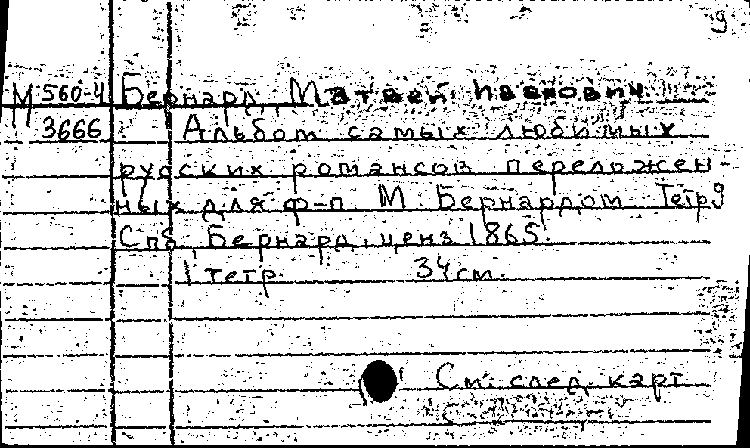 9
М 560-4 Бернард, Матвей Иванович.
3666 Альбом самых любимых
русских романсов переложен-
ных для ф-п. М. Бернардом. Тетр 9
Спб, Бернард, ценз 1865.
1 тетр. 34 см.
См. след. карт